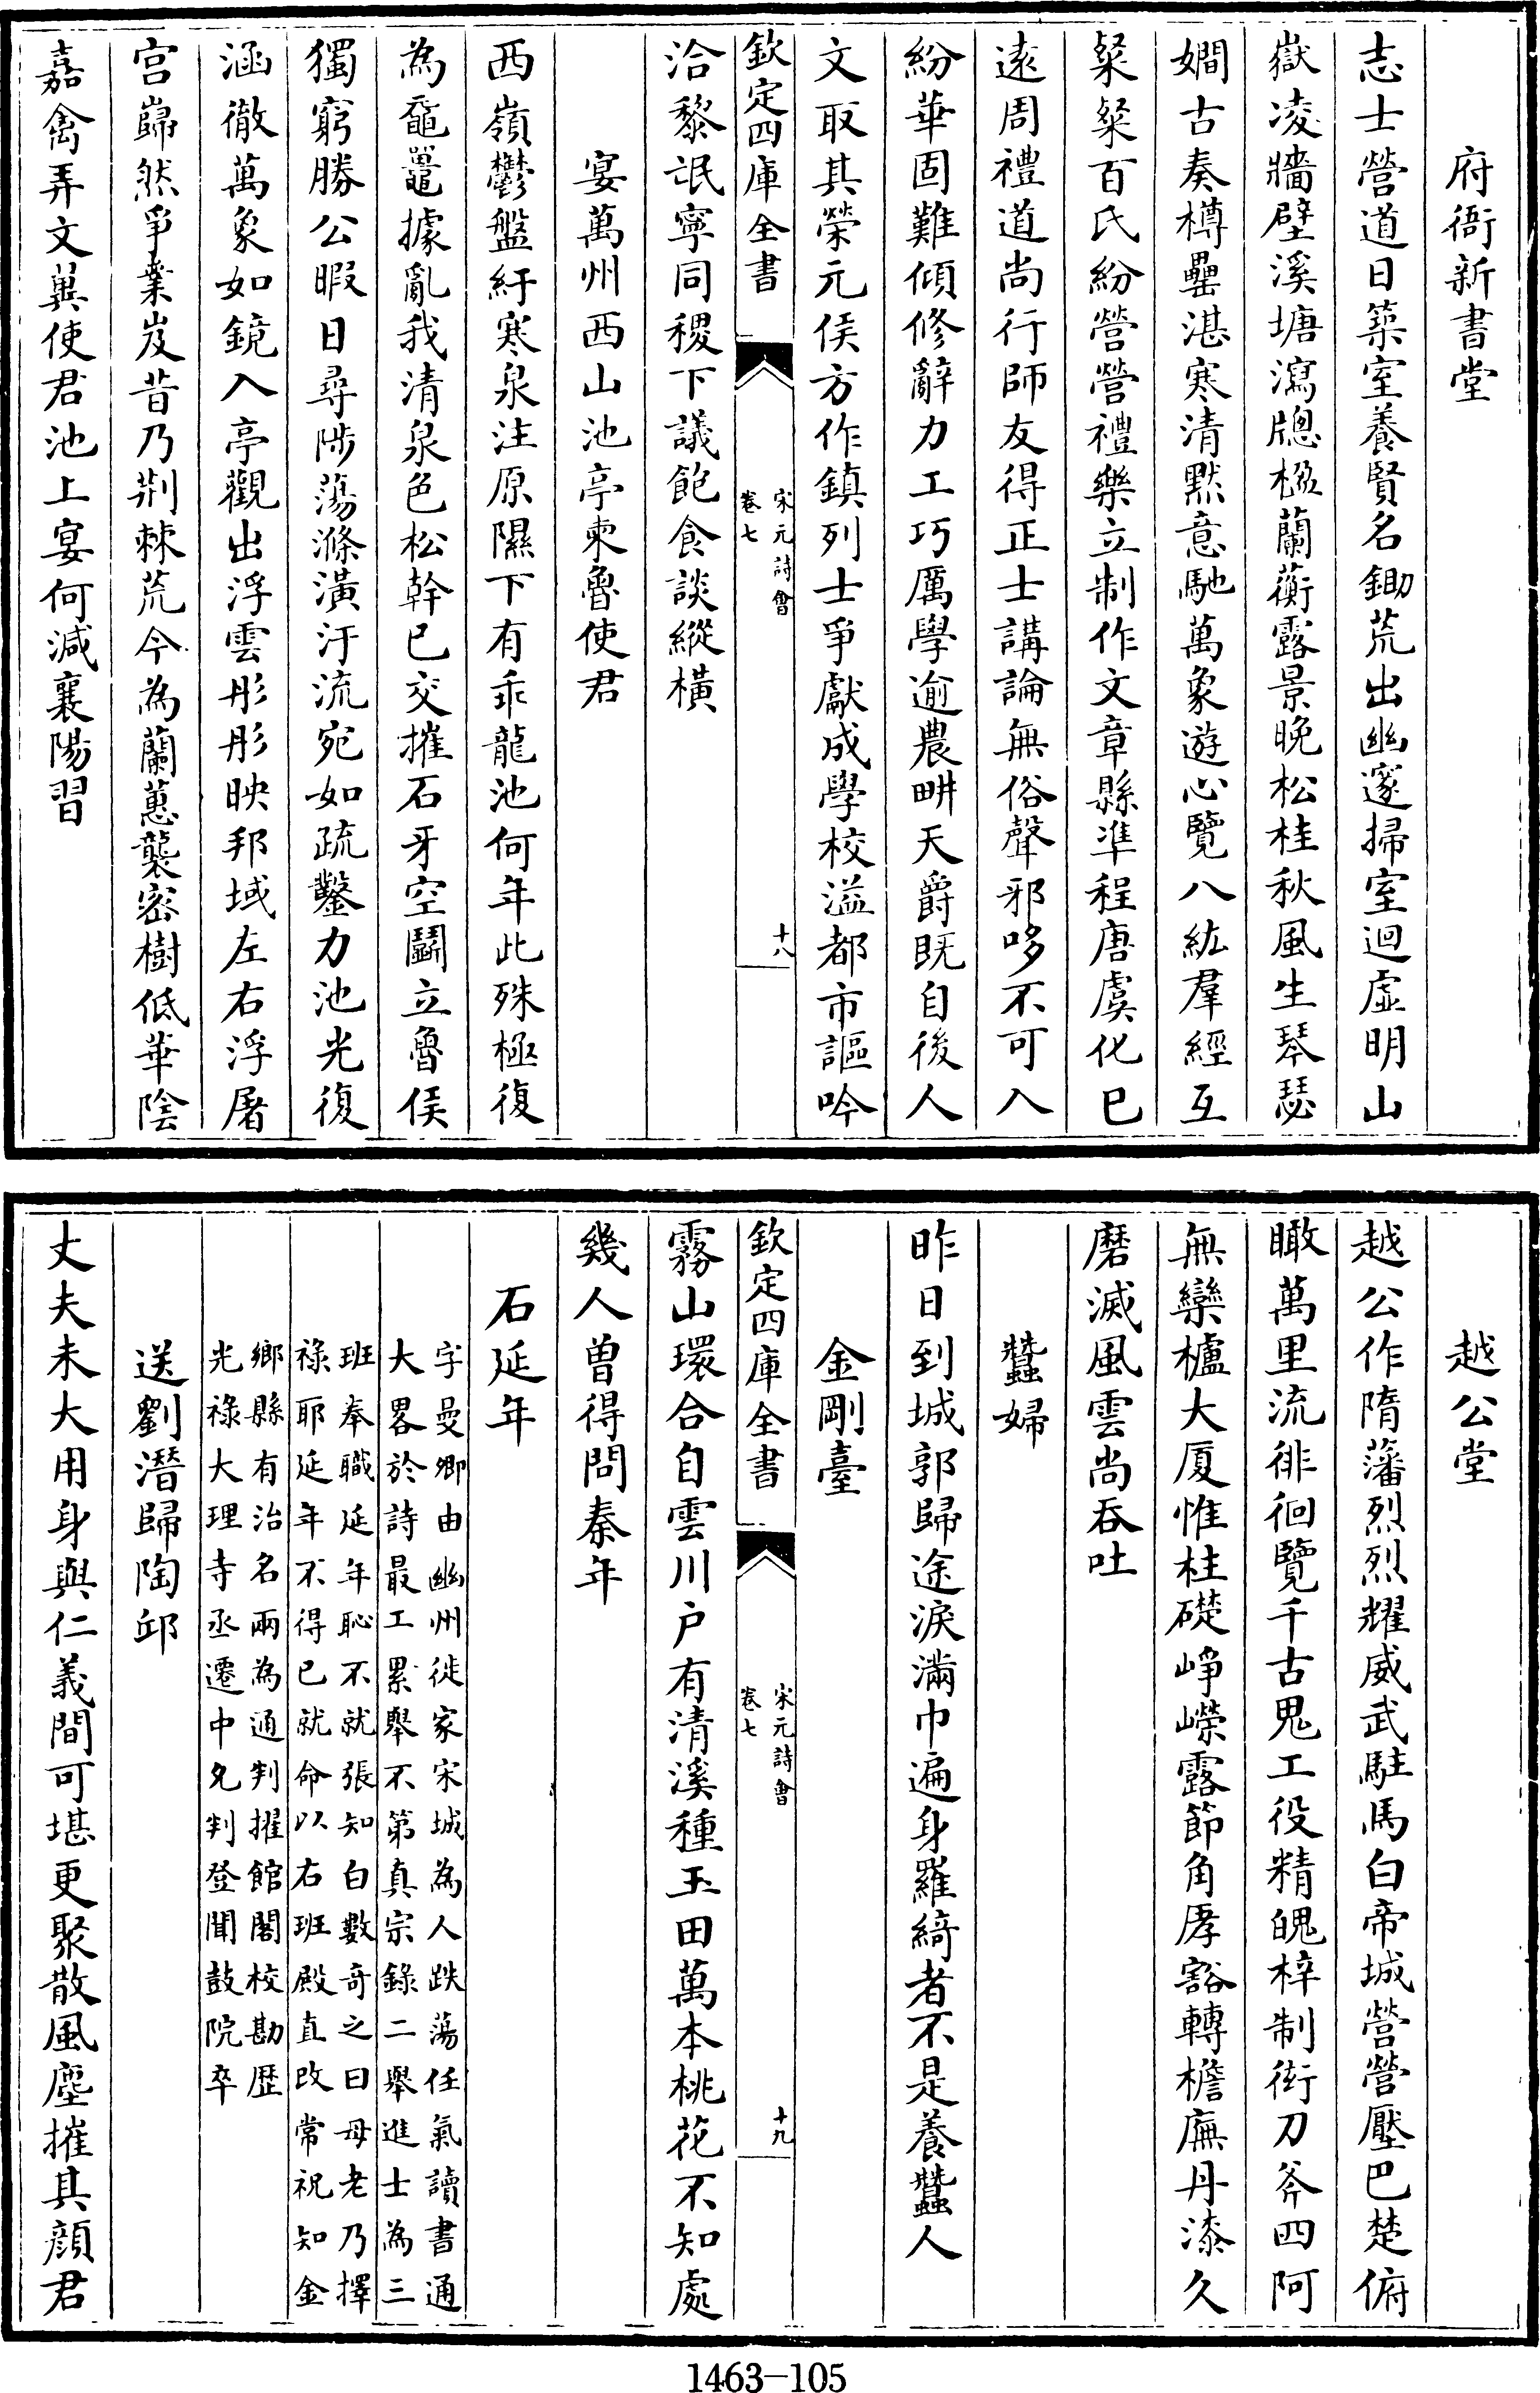 府衙新書堂
志士營道日築室養賢名鋤荒出幽邃掃室迴虛明山
嶽凌牆壁溪塘瀉牕楹蘭蘅露景晚松桂秋風生琴瑟
嫺古奏樽罍湛寒清默意馳萬象遊心覽八紘羣經互
粲粲百氏紛營營禮樂立制作文章縣準程唐虞化已
遠周禮道尚行師友得正士講論無俗聲邪哆不可入
紛華固難傾修辭力工巧厲學逾農畊天爵既自後人
文取其榮元侯方作鎮列士爭獻成學校溢都市謳吟
欽定四庫全書
宋元詩會
卷七
十八
洽黎氓寧同稷下議飽食談縱橫
宴萬州西山池亭柬魯使君
西嶺鬱盤紆寒泉注原隰下有乖龍池何年此殊極復
為黿鼉據亂我清泉色松幹已交摧石牙空鬬立魯侯
獨窮勝公暇日尋陟蕩滌潢汙流宛如疏鑿力池光復
涵徹萬象如鏡入亭觀出浮雲彤彤映邦域左右浮屠
宮巋然爭業岌昔乃荆棘荒今為蘭蕙襲密樹低華陰
嘉禽弄文翼使君池上宴何減襄陽習
越公堂
越公作隋藩烈烈耀威武駐馬白帝城營營壓巴楚俯
瞰萬里流徘徊覽千古鬼工役精魄梓制銜刀斧四阿
無欒櫨大厦惟柱礎崢嶸露節角厚豁轉檐廡丹漆久
磨滅風雲尚吞吐
蠶婦
昨日到城郭歸途淚滿巾遍身羅綺者不是養蠶人
金剛臺
欽定四庫全書
宋元詩會
卷七
十九
霧山環合自雲川户有清溪種玉田萬本桃花不知處
幾人曾得問秦年
石延年
字曼卿由幽州徙家宋城為人跌蕩任氣讀書通
大畧於詩最工累舉不第真宗錄二舉進士為三
班奉職延年恥不就張知白數奇之曰母老乃擇
祿耶延年不得已就命以右班殿直改常祝知金
鄉縣有治名兩為通判擢館閣校勘歷
光祿大理寺丞遷中允判登聞鼓院卒
送劉潛歸陶邱
丈夫未大用身與仁義間可堪更聚散風塵摧其顔君
1463-105